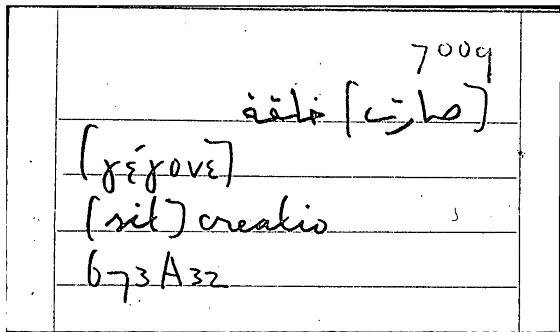 7009
[صارت] خلقة
[γέγονε]
[sit] creatio
673A32